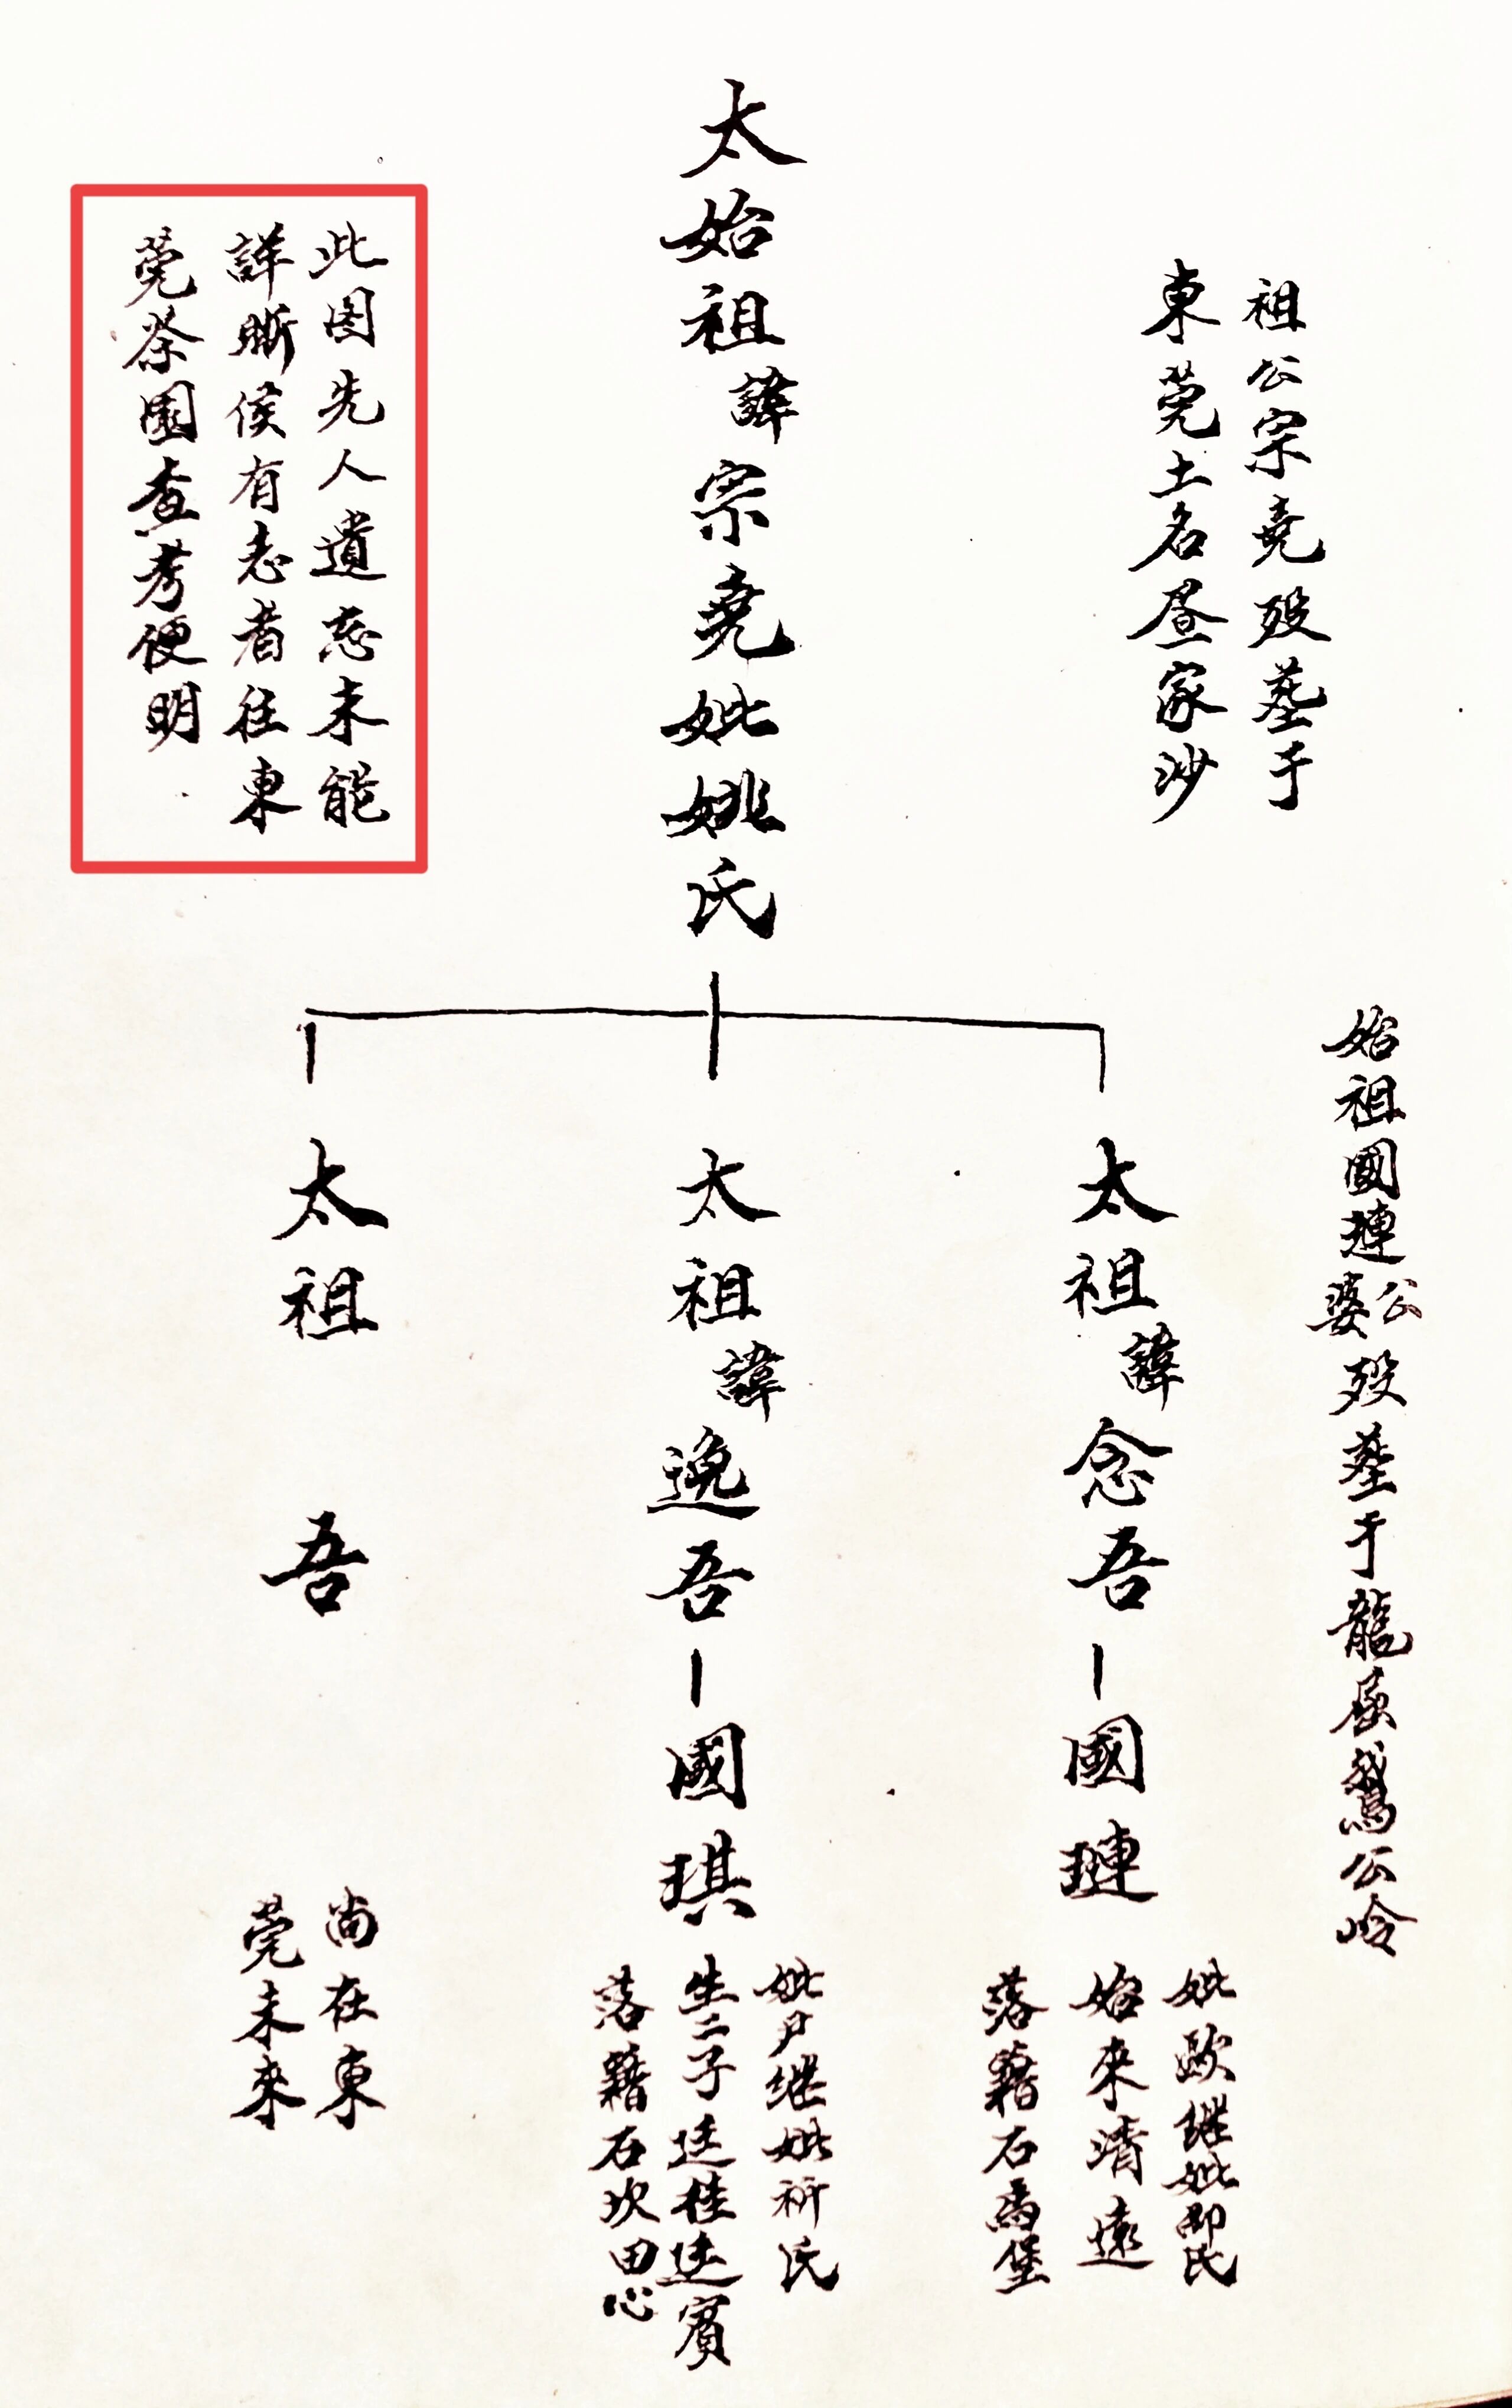 祖公宗堯殁葬于
東莞土名昼家沙
太始祖諱宗堯妣姚氏
此图先人遺忘未能
詳晰侯有志者往東
莞茶園查考便明
始祖國璉公婆殁葬于龍屈鵞公岭
太祖諱念吾
國璉
妣欧继妣邵氏
始來清遠
落籍石馬堡
太祖諱逸吾
國琪
妣尹继妣祈氏
生二子廷桂廷賓
落籍石坎田心
太祖 吾
尚在東
莞未來